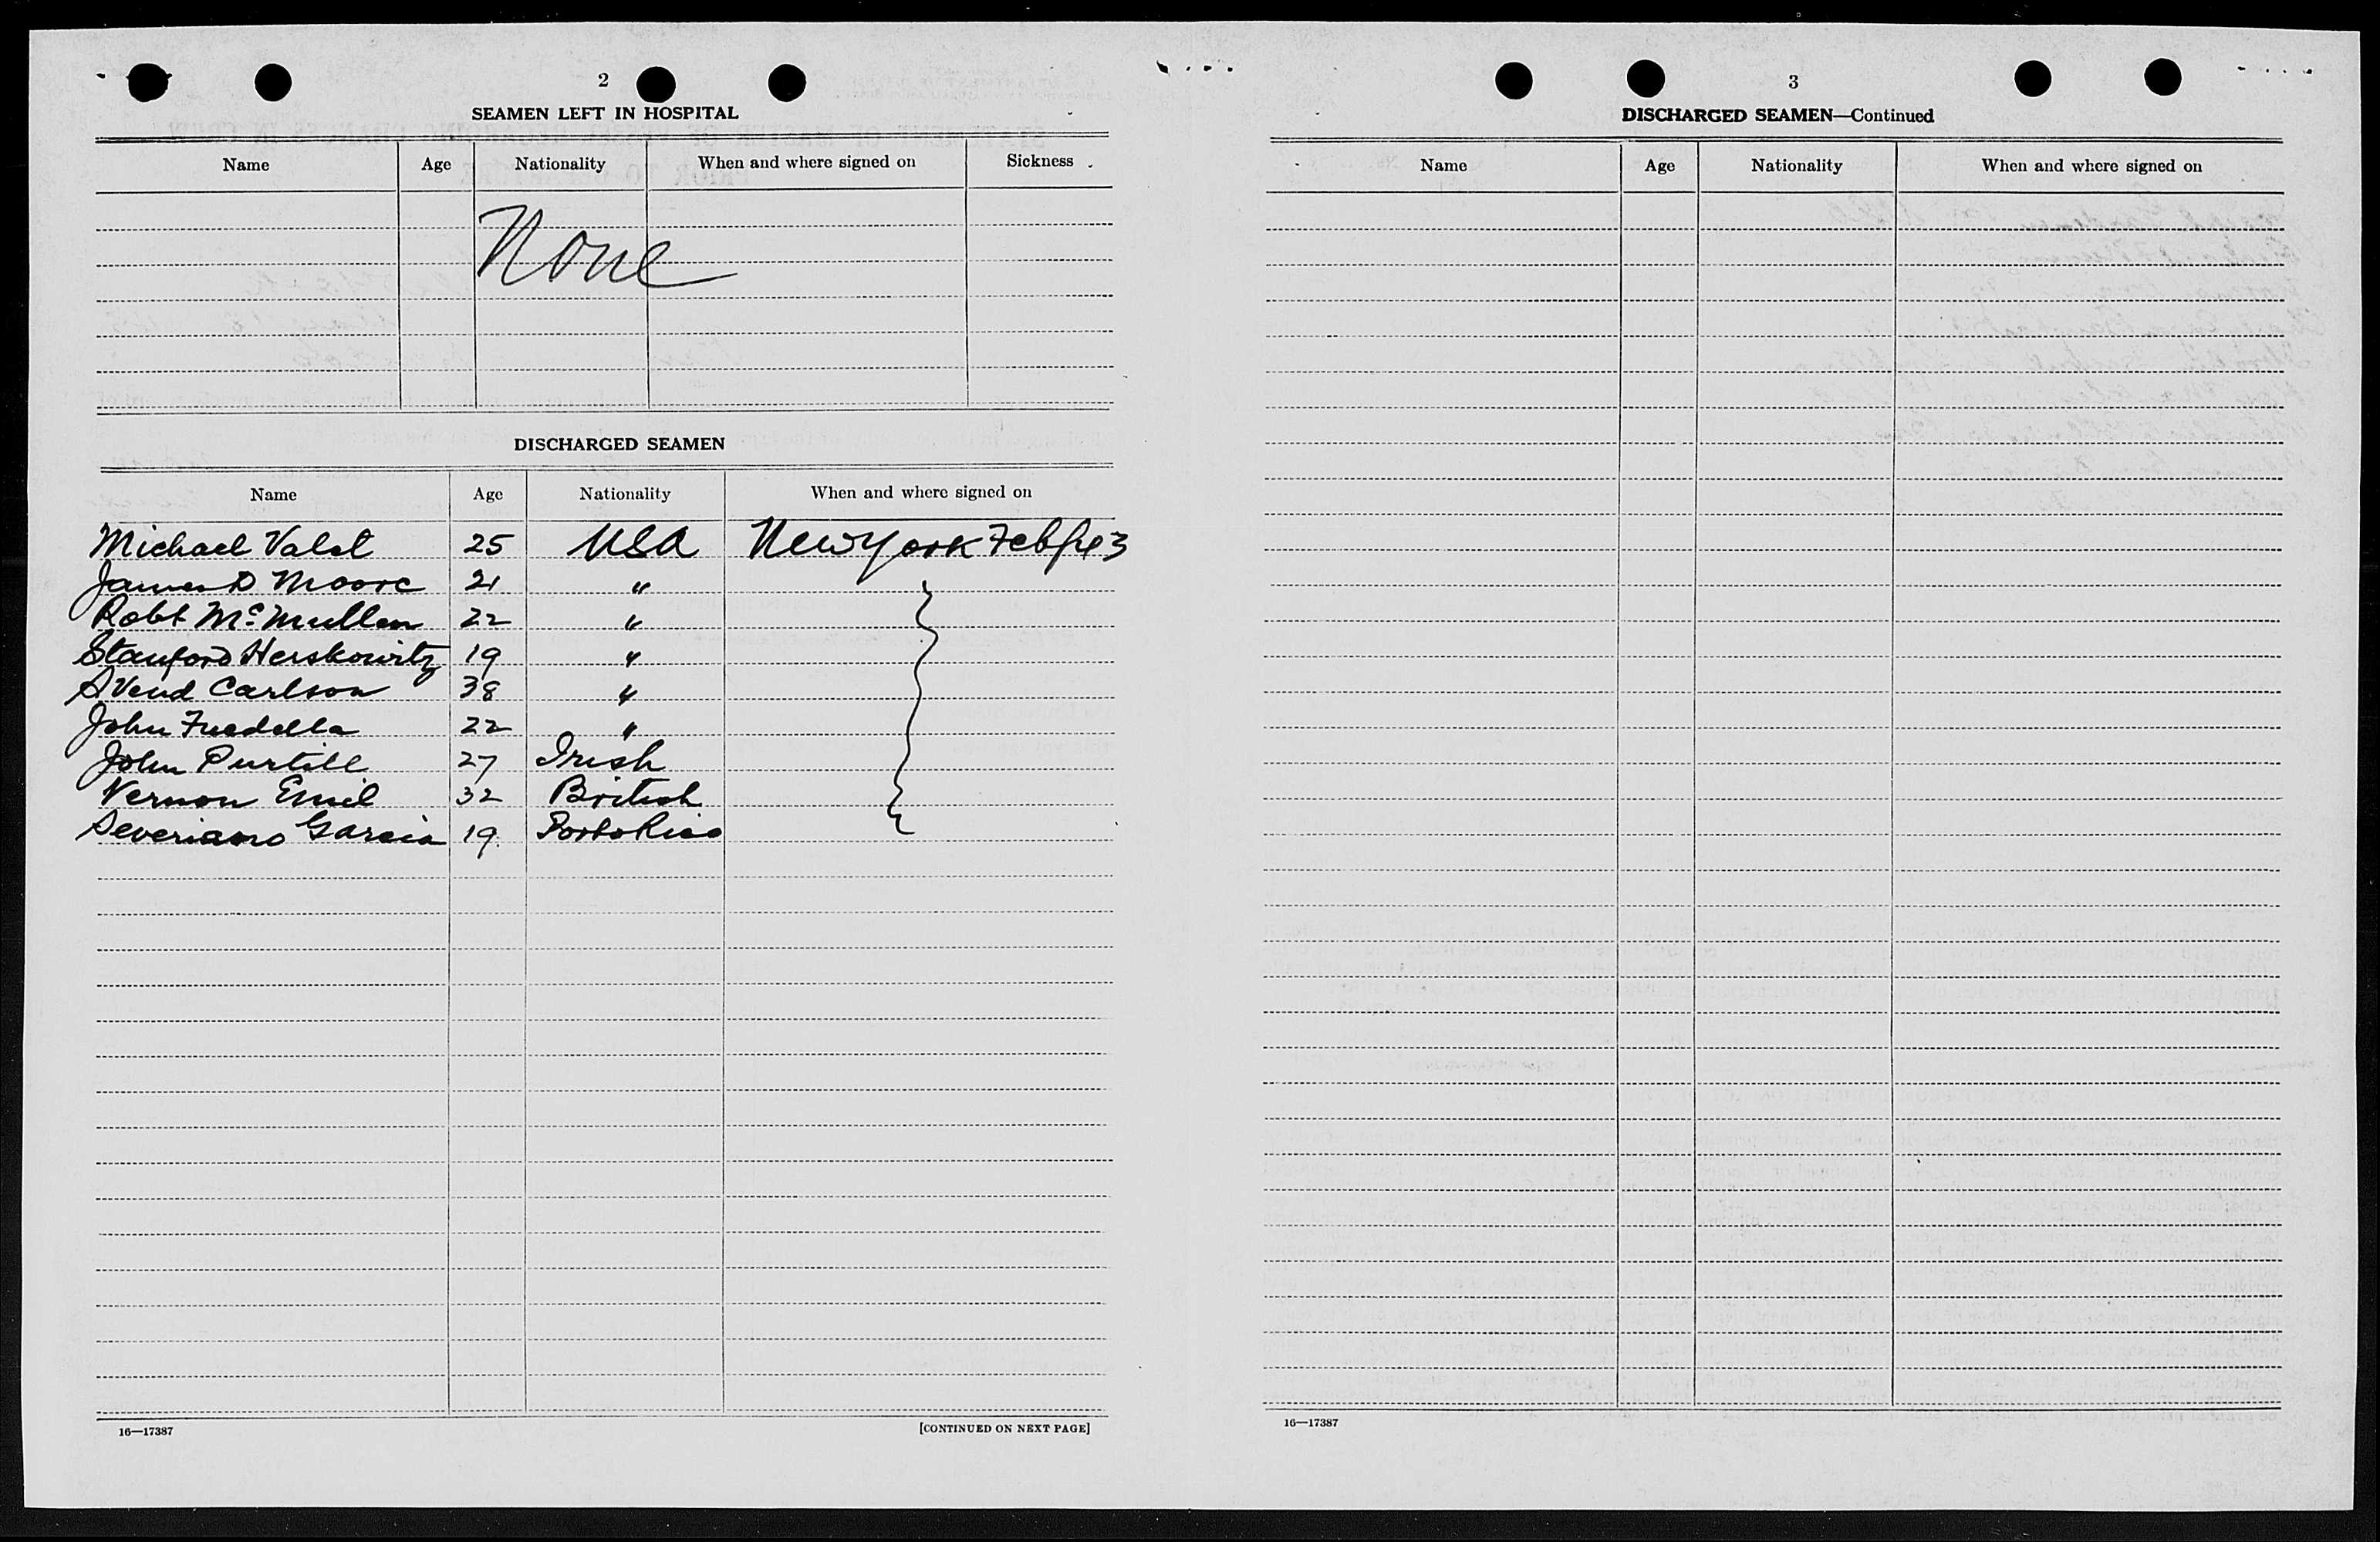 2
SEAMEN LEFT IN HOSPITAL
Name Age Nationality When and where signed on Sickness
None
DISCHARGED SEAMEN
Name Age Nationality When and where signed on
Michael Valet 25 USA New York Feb/43
James D Moore 21 "
Robt McMullen 22 "
Stanford Herskowitz 19 "
SVend Carlson 38 "
John 22 "
John Purtill 27 Irish
Vernon Emil 32 British
Severiano Garcia 19 Porto Rico
16—17387 [CONTINUED ON NEXT PAGE]
3
DISCHARGED SEAMEN—Continued
Name Age Nationality When and where signed on
16—17387